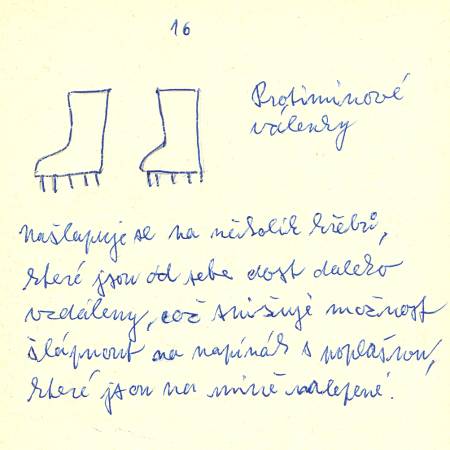 16
Protiminové
válenky
Našlapuje se na několik hřebů,
které jsou od sebe dost daleko
vzdáleny, což snižuje možnost
šlápnout na napínák s poplašnou,
které jsou na mině nalepené.